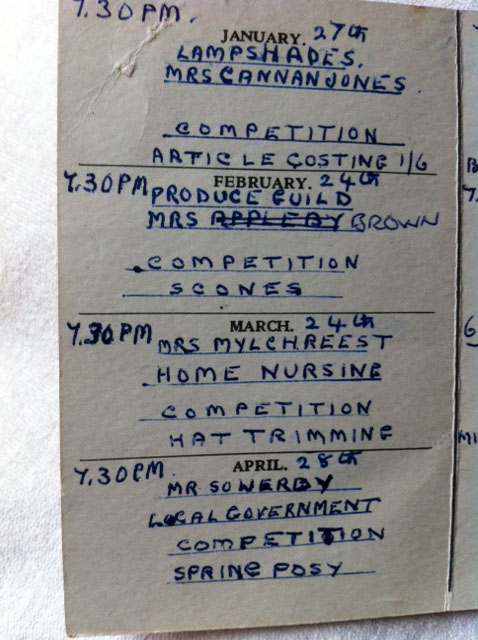 7.30PM.
JANUARY. 27th
LAMPSHADES.
MRS CANNAN JONES.
COMPETITION
ARTICLE COSTING 1/6
7.30PM FEBRUARY. 24th
PRODUCE GUILD
MRS APPLEBY BROWN
COMPETITION
SCONES
7.30PM MARCH. 24th
MRS MYLCHREEST
HOME NURSING
COMPETITION
HAT TRIMMING
7.30PM. APRIL. 28th
MR SOWERBY
LOCAL GOVERNMENT
COMPETITION
SPRING POSY